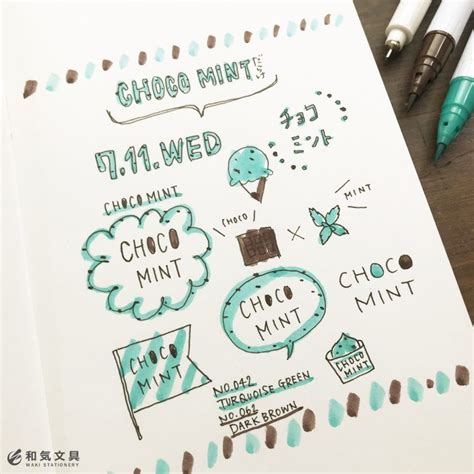 CHOCO MINT
7.11.WED
チョコ
ミント
CHOCO MINT
CHOCO
MINT
CHOCO
MINT
CHOCO
MINT
CHOCO
MINT
CHOCO
MINT
CHOCO
MINT
NO.042
TURQUOISE GREEN
NO.061
DARK BROWN
和気文具
WAKI STATIONERY